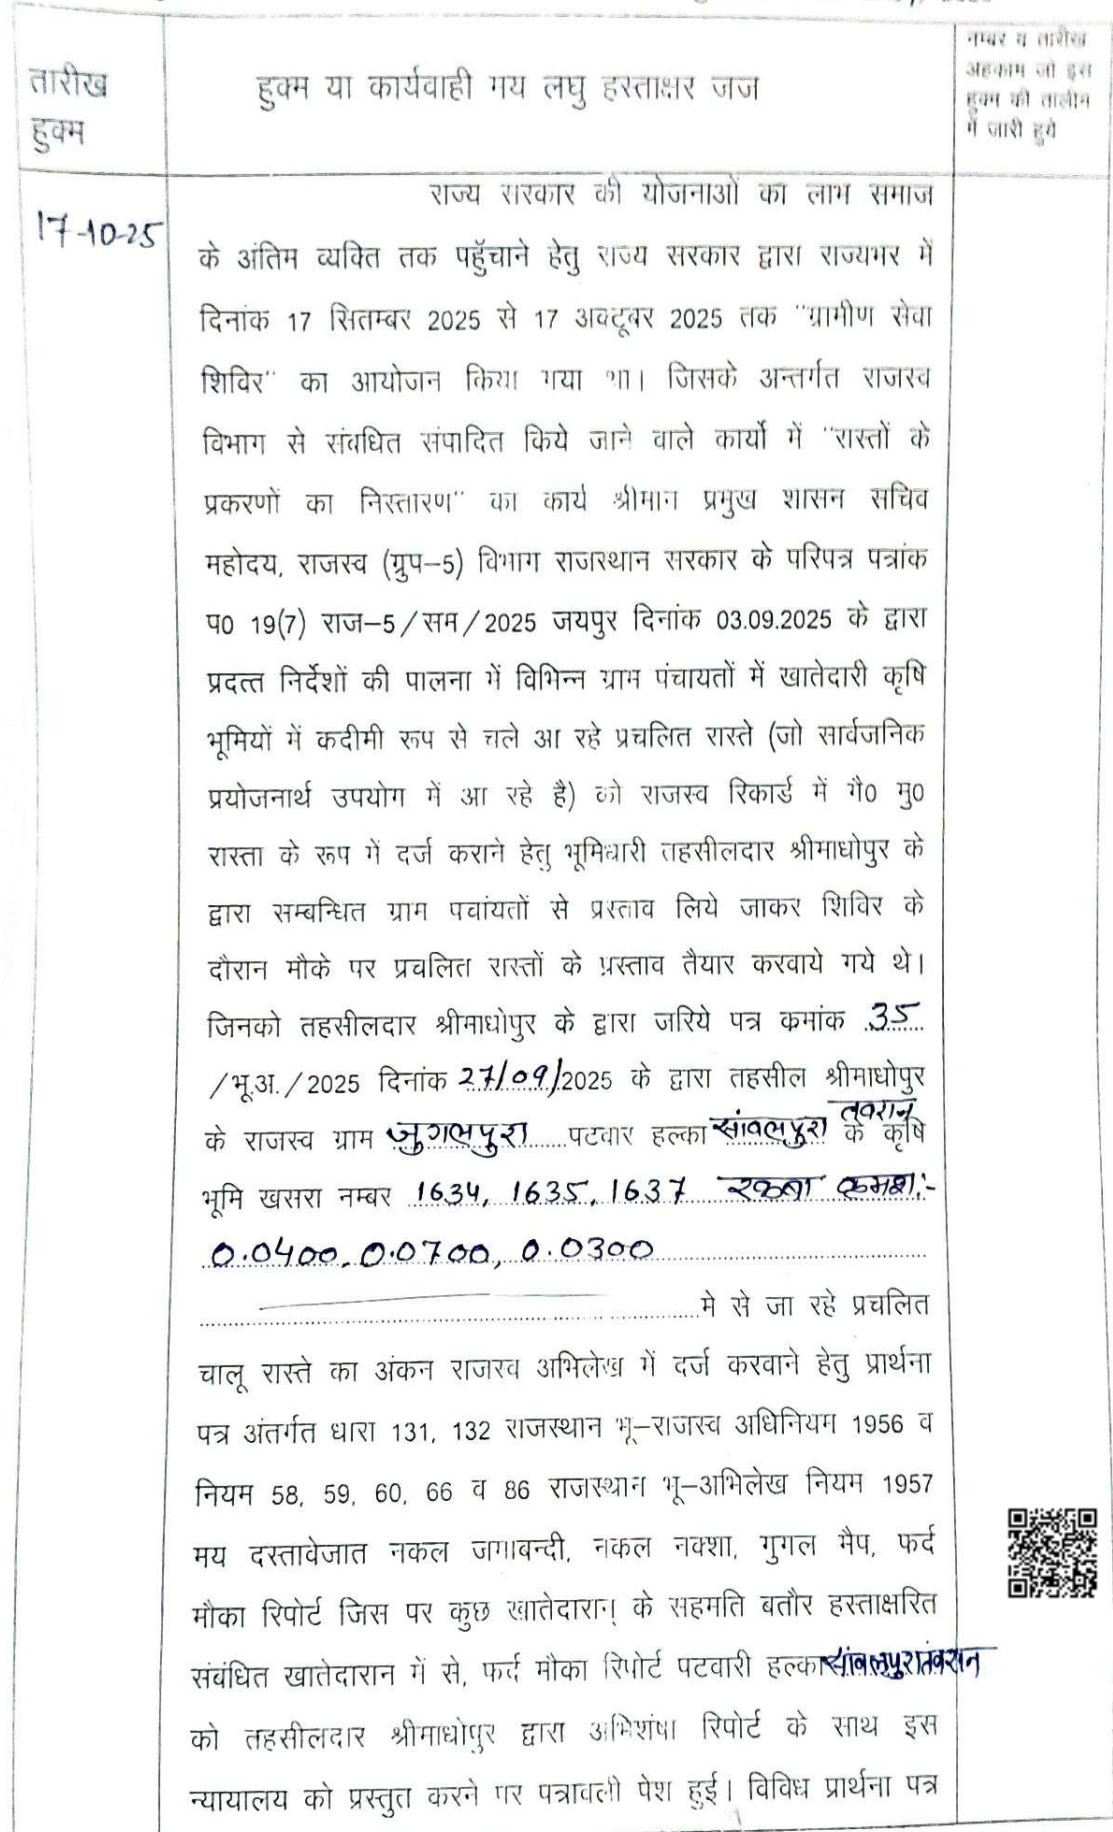 तारीख
हुक्म
हुक्म या कार्यवाही मय लघु हस्ताक्षर जज
नम्बर व तारीख
अहकाम जो इस
हुक्म की तालीम
में जारी हुये
17-10-25
राज्य सरकार की योजनाओं का लाभ समाज
के अंतिम व्यक्ति तक पहुँचाने हेतु राज्य सरकार द्वारा राज्यभर में
दिनांक 17 सितम्बर 2025 से 17 अक्टूबर 2025 तक "ग्रामीण सेवा
शिविर" का आयोजन किया गया था। जिसके अन्तर्गत राजस्व
विभाग से संबधित संपादित किये जाने वाले कार्यो में "रास्तों के
प्रकरणों का निस्तारण" का कार्य श्रीमान प्रमुख शासन सचिव
महोदय, राजस्व (ग्रुप–5) विभाग राजस्थान सरकार के परिपत्र पत्रांक
प0 19(7) राज–5/सम/2025 जयपुर दिनांक 03.09.2025 के द्वारा
प्रदत्त निर्देशों की पालना में विभिन्न ग्राम पंचायतों में खातेदारी कृषि
भूमियों में कदीमी रूप से चले आ रहे प्रचलित रास्ते (जो सार्वजनिक
प्रयोजनार्थ उपयोग में आ रहे है) को राजस्व रिकार्ड में गै0 मु0
रास्ता के रूप में दर्ज कराने हेतु भूमिधारी तहसीलदार श्रीमाधोपुर के
द्वारा सम्बन्धित ग्राम पचांयतों से प्रस्ताव लिये जाकर शिविर के
दौरान मौके पर प्रचलित रास्तों के प्रस्ताव तैयार करवाये गये थे।
जिनको तहसीलदार श्रीमाधोपुर के द्वारा जरिये पत्र कमांक 35
/भू.अ./2025 दिनांक 27/09/2025 के द्वारा तहसील श्रीमाधोपुर
के राजस्व ग्राम जुगलपुरा पटवार हल्का सांवलपुरा तवरान के कृषि
भूमि खसरा नम्बर 1634, 1635, 1637 रकबा क्रमश:-
0.0400, 0.0700, 0.0300
मे से जा रहे प्रचलित
चालू रास्ते का अंकन राजस्व अभिलेख में दर्ज करवाने हेतु प्रार्थना
पत्र अंतर्गत धारा 131, 132 राजस्थान भू–राजस्व अधिनियम 1956 व
नियम 58, 59, 60, 66 व 86 राजस्थान भू–अभिलेख नियम 1957
मय दस्तावेजात नकल जमाबन्दी, नकल नक्शा, गुगल मैप, फर्द
मौका रिपोर्ट जिस पर कुछ खातेदारान् के सहमति बतौर हस्ताक्षरित
संबंधित खातेदारान में से, फर्द मौका रिपोर्ट पटवारी हल्का सांवलपुरा तवरान
को तहसीलदार श्रीमाधोपुर द्वारा अभिशंषा रिपोर्ट के साथ इस
न्यायालय को प्रस्तुत करने पर पत्रावली पेश हुई। विविध प्रार्थना पत्र